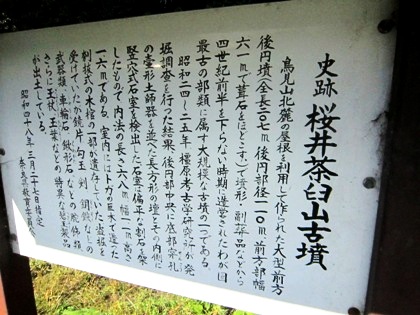 史跡 桜井茶臼山古墳
鳥見山北麓の尾根を利用して作られた大型前方
後円墳(全長二〇七m 後円部径一一〇m 前方部幅
六一mで葺石をほどこす)で墳形・副葬品などから
四世紀前半を下らない時期に造営されたわが国
最古の部類に属す大規模な古墳の一つである。
昭和二四〜二五年 橿原考古学研究所が発
掘調査を行った結果、後円部中央に底部穿孔
の壺形土師器を並べた長方形の壇とその内側に
竪穴式石室を検出した。石室は扁平な割石を築
したもので 内法の長さ六八m 幅 高さ
一六mである。室内にはトガの巨木で造った
刳抜式の木棺の一部が遺存していた。盗掘を
受けていたが鏡片 勾玉 剣 銅鏃などの
武器類 車輪石 鍬形石 などの腕飾類
さらに玉杖 玉葉などの特異な碧玉製品
が出土している。
昭和四十八年三月二十七日指定
奈良県教育委員会